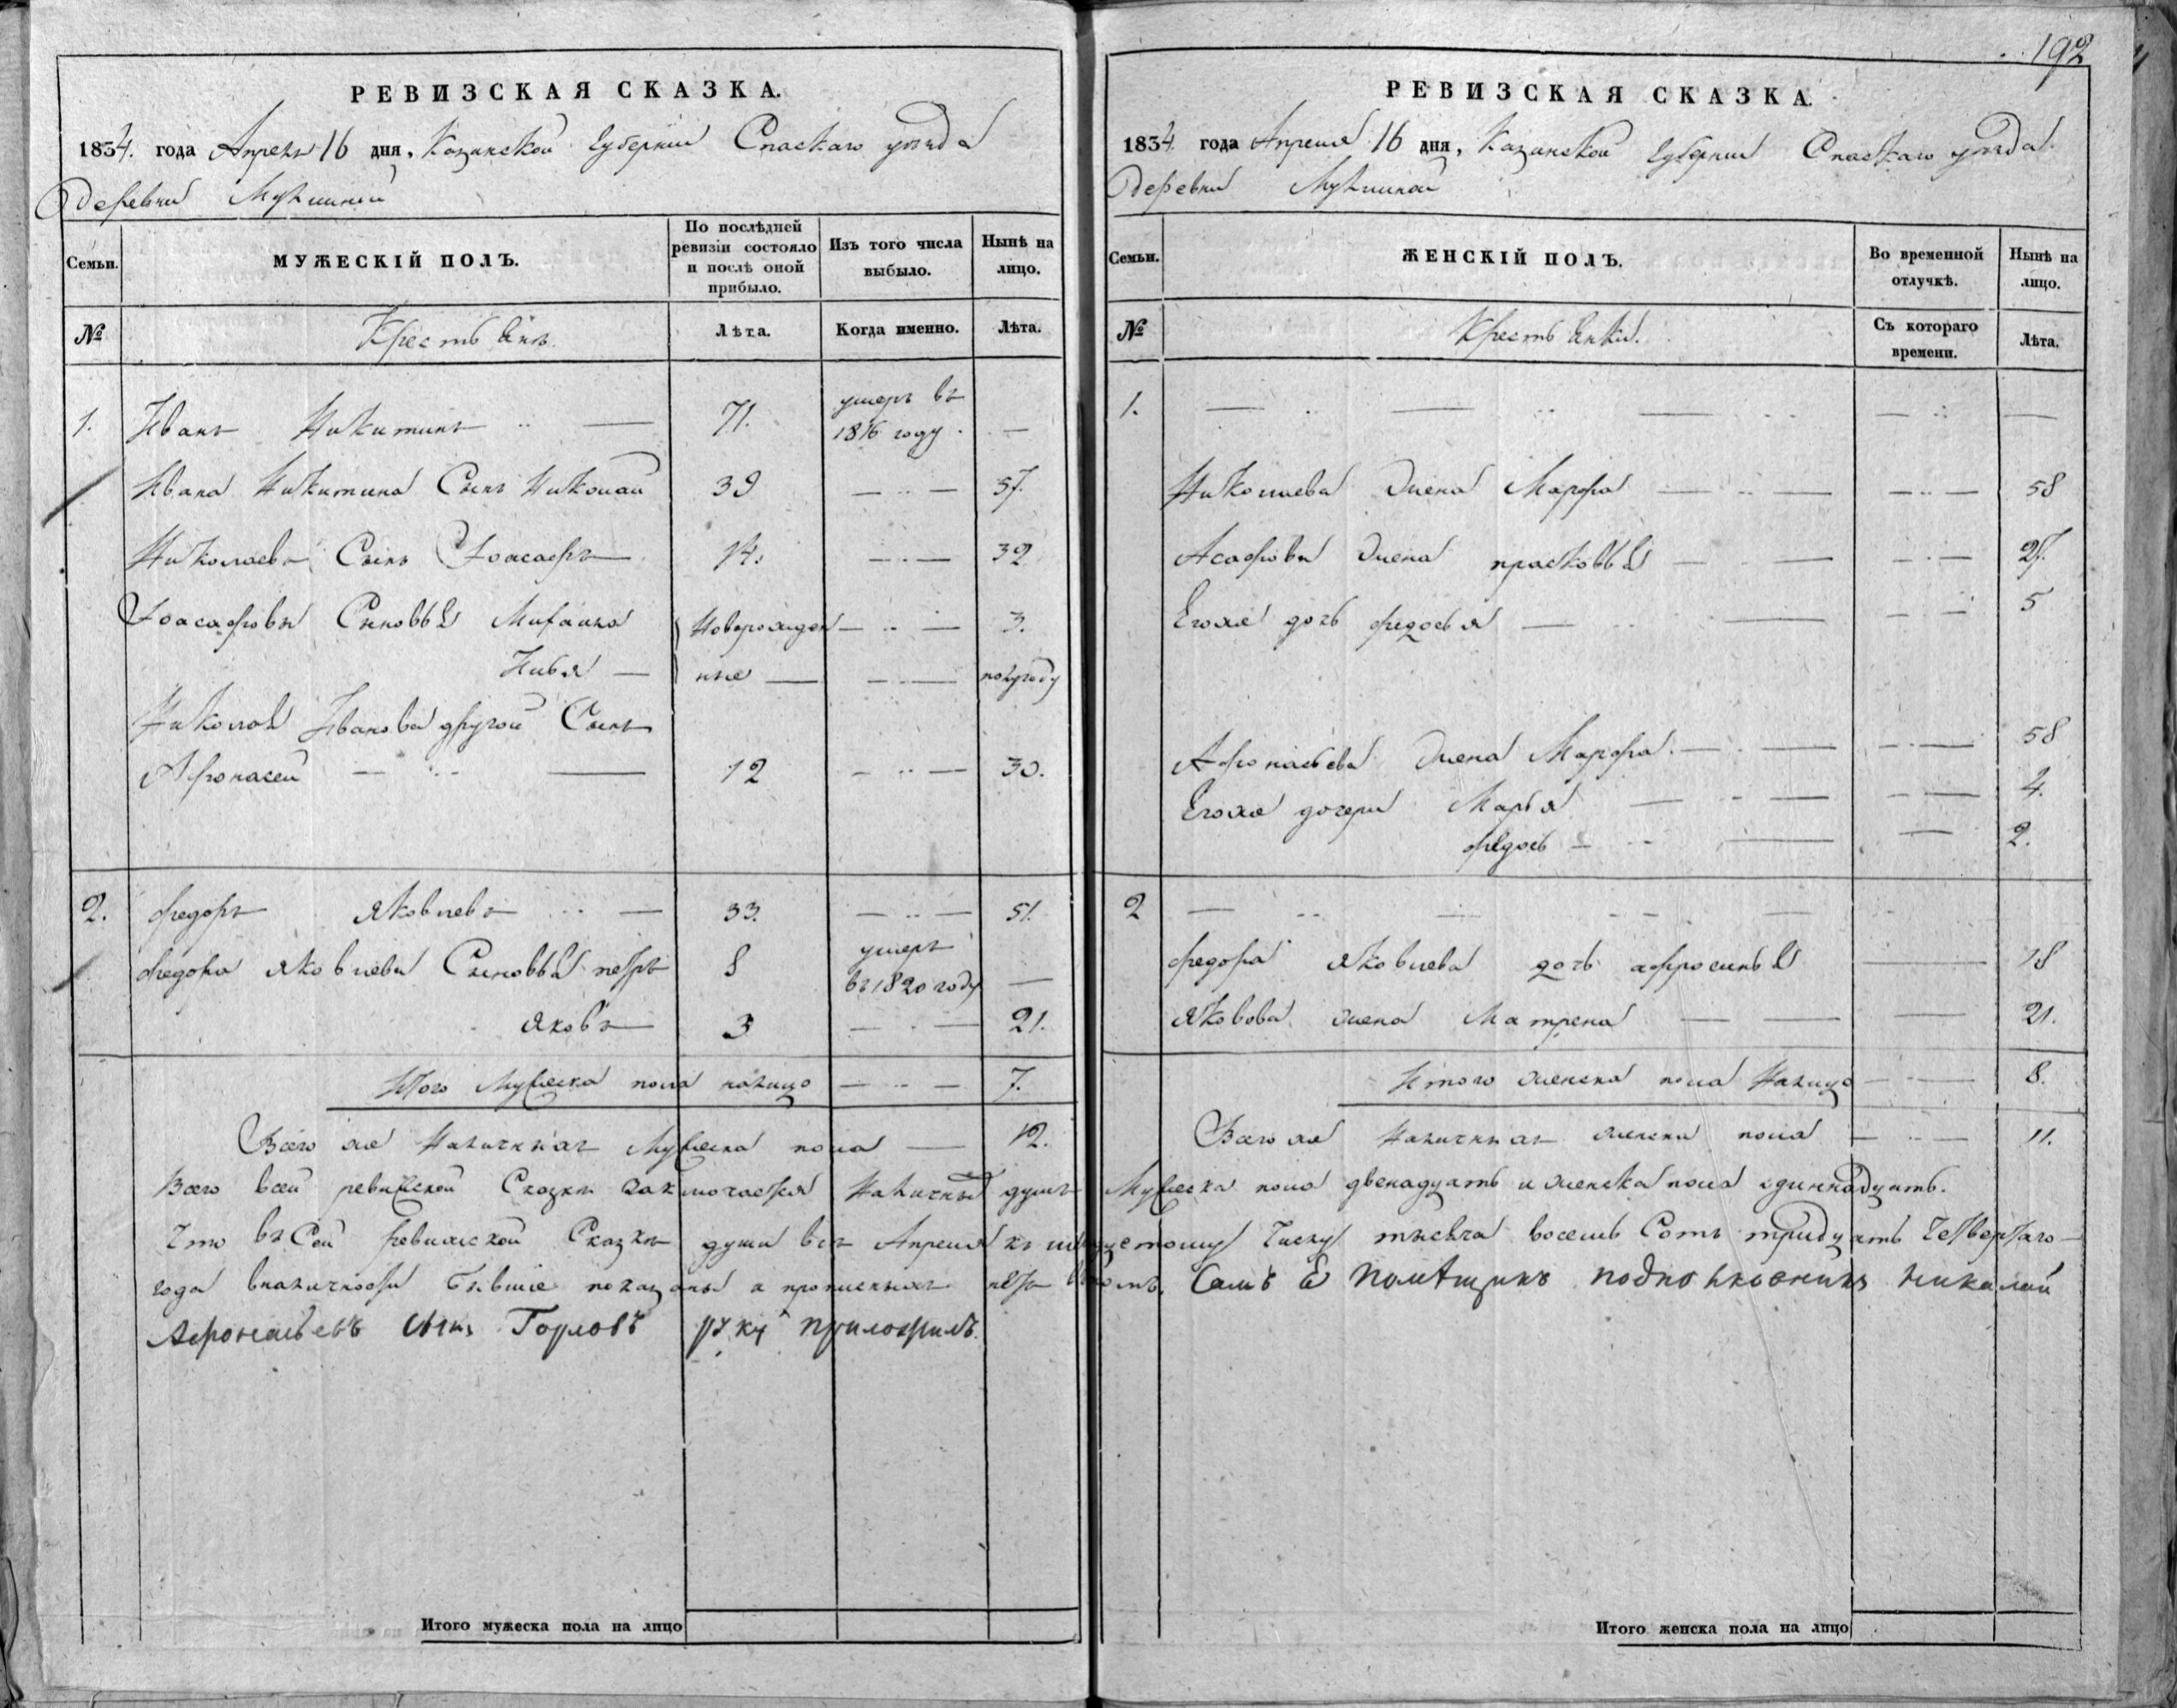 РЕВИЗСКАЯ СКАЗКА.
1834. года Апреля 16 дня, Казанской Губернии Спаскаго уезда
Деревни
Семьи.
МУЖЕСКІЙ ПОЛЪ.
По послѣдней ревизіи состояло и послѣ оной прибыло.
Изъ того числа выбыло.
Нынѣ на лицо.
№
Крестьяне.
Лѣта.
Когда именно.
Лѣта.
1. Иванъ Никитинъ 71. умеръ въ 1816 году. —
Ивана Никитина Сынъ Николай 39 — 57.
Николаевъ Сынъ Иоасафъ 14. — 32
Иоасафовы Сыновья Михаила Новорожден — 3.
Илья — ные — полугоду
Николая Иванова другой Сынъ
Афонасей — 12 — 30.
2. Федоръ Яковлевъ — 33. — 51.
Федора Яковлева Сыновья петръ 8 умеръ въ 1820 году —
Яковъ 3 — 21.
Итого Мужеска пола налицо — 7.
Всего же Наличныхъ Мужеска пола — 12.
192
РЕВИЗСКАЯ СКАЗКА.
1834 года Апреля 16 дня, Казанской Губернии Спаскаго уезда
Деревни
Семьи.
ЖЕНСКІЙ ПОЛЪ.
Во временной отлучкѣ.
Нынѣ на лицо.
№
Крестьянки.
Съ котораго времени.
Лѣта.
1. — — — — —
Николаева Жена Марфа — — 58
Асафова Жена прасковья — — 27.
Егоже дочь федосья — — 5
Афонасьева Жена Марфа. — — 58
Егоже дочери Марья — — 4.
федось — — 2.
2 — — —
федора Яковлева дочь афросинья — 18
Яковова жена Матрена — — 21.
Итого женска пола Налицо — 8.
Всего же Наличныхъ женска пола — 11.
Всего всей ревижской Сказки заключается Наличныхъ душъ Мужеска пола двенадцать и женска пола одиннадцать.
Что въ Сей ревижской Сказке души все Апреля къ числу тысяча восемь Сотъ тридцать Четвертаго
года вналичности бывшие показаны а прописныхъ нетъ Въ томъ. Самъ Е Помещикъ подполковникъ николай
Афонасьевъ сынъ Горловъ руку приложилъ.
Итого мужеска пола на лицо
Итого женска пола на лицо